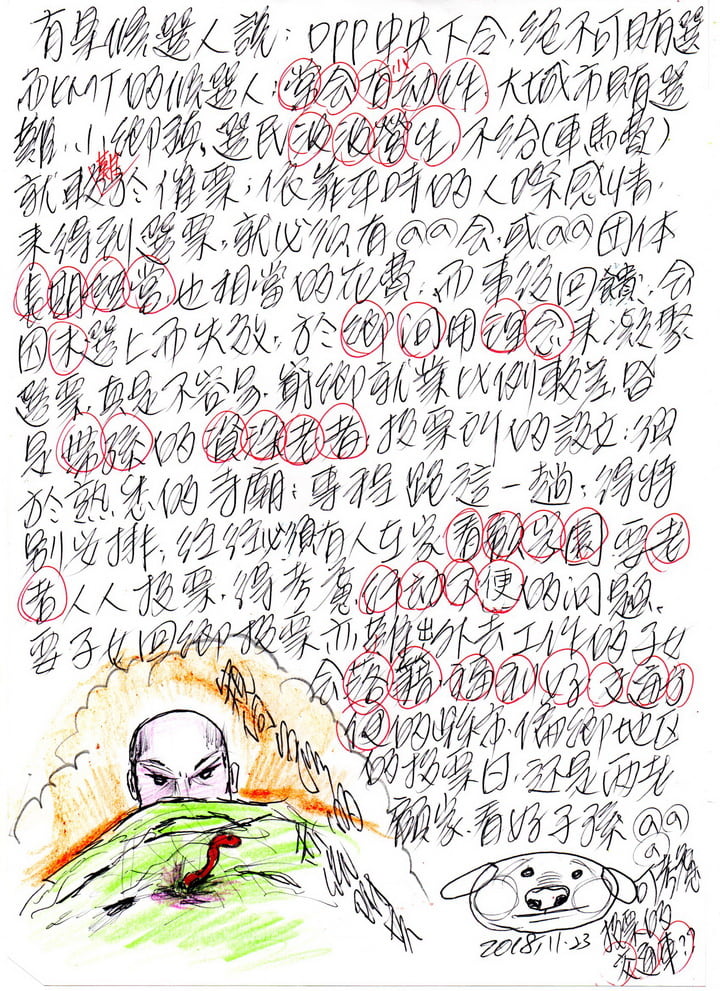 有某候選人說:DPP中央下令,絕不可具有選
而KMT的候選人:當会有动作,大城市具有選
難,小鄉鎮,選民
不給(車馬費)
就難於催票;依靠平時的人際感情,
來得到選票,就必須有@@会,或@@团体
長期經營也相當的花費,而事後回饋,会
因未選上而失敗,於鄉间用理念來凝聚
選票真是不容易,窮鄉就業比例較差,皆
是帶孫的資深老者,投票所的設立:須
於熟悉的寺廟;專程跑這一趟;得特
別安排,往往必須有人在家看顧家園要老
者人人投票,得考慮行动不便的问題,
要子女回鄉投票亦難,出外去工作的子女
会落籍,福利好交通方
便的城市,偏鄉地区
的投票日,还是两老
顧家,看好子孫@@
投票的
交通車??
2018,11-23